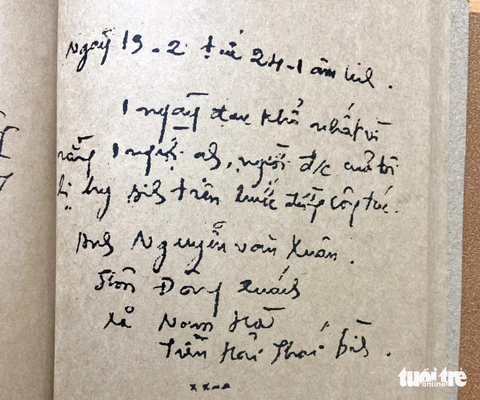 Ngày 19-2 tức 24-1 âm lịch.
1 ngày đau khổ nhất vì
rằng 1 người anh, người đ/c của tôi
bị hy sinh trên bước đường công tác.
Anh Nguyễn văn Xuân.
thôn Đông Quách
xã Nam Hà
Tiền Hải Thái Bình.
tuổi trẻ
online